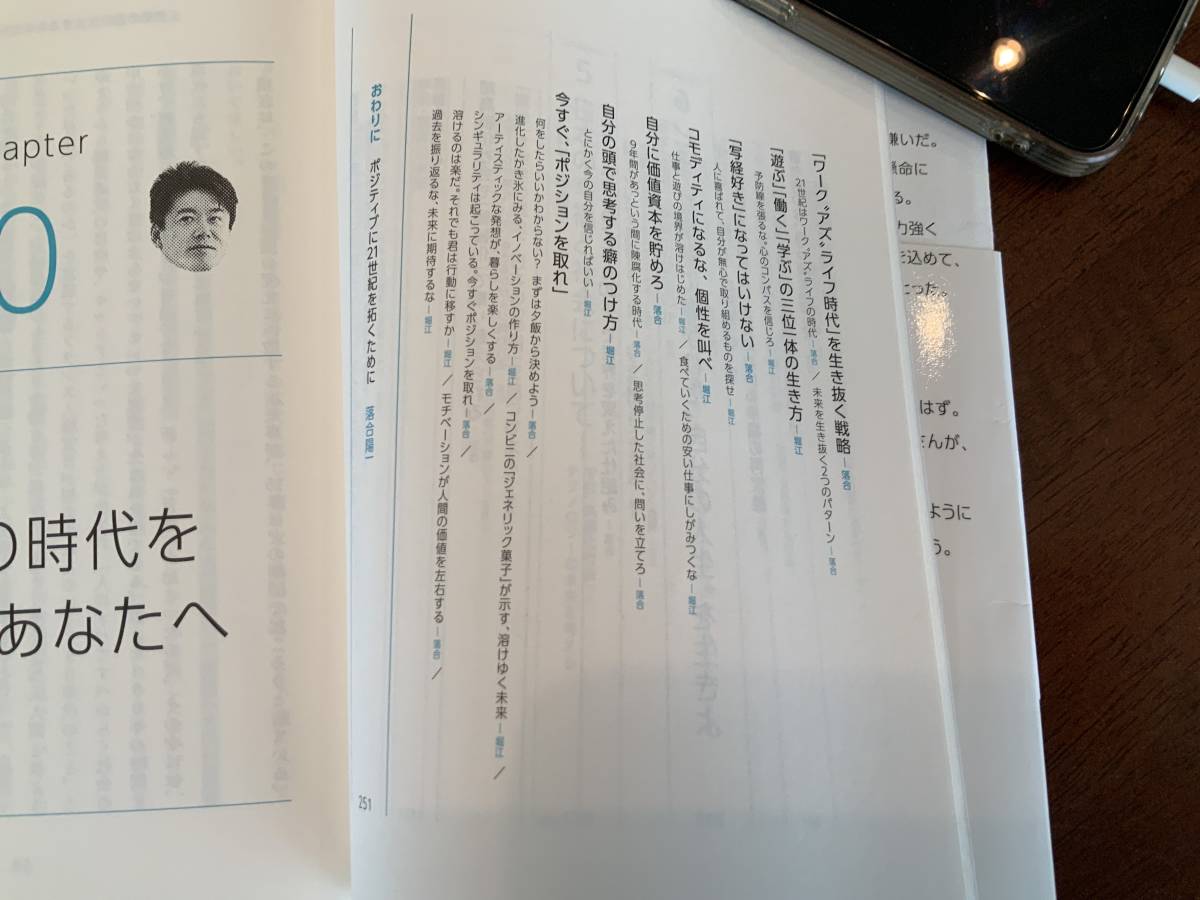 「ワーク“アズ”ライフ時代」を生き抜く戦略―落合
21世紀はワーク“アズ”ライフの時代―落合 / 未来を生き抜く2つのパターン―落合
「遊ぶ」「働く」「学ぶ」の三位一体の生き方―堀江
予防線を張るな。心のコンパスを信じろ―堀江
「写経好き」になってはいけない―落合
人に喜ばれて、自分が無心で取り組めるものを探せ―堀江
コモディティになるな、個性を叫べ―堀江
仕事と遊びの境界が溶けはじめた―堀江 / 食べていくための安い仕事にしがみつくな―堀江
自分に価値資本を貯めろ―落合
9年間があっという間に陳腐化する時代―落合 / 思考停止した社会に、問いを立てろ―落合
自分の頭で思考する癖のつけ方―堀江
とにかく今の自分を信じればいい―堀江
今すぐ、「ポジションを取れ」
何をしたらいいかわからない? まずは夕飯から決めよう―落合 /
進化したかき氷にみる、イノベーションの作り方―堀江 / コンビニの「ジェネリック菓子」が示す、溶けゆく未来―堀江 /
アーティスティックな発想が、暮らしを楽しくする―落合 /
シンギュラリティは起こっている。今すぐポジションを取れ―落合 /
溶けるのは楽だ。それでも君は行動に移すか―堀江 / モチベーションが人間の価値を左右する―落合 /
過去を振り返るな、未来に期待するな―堀江
おわりに ポジティブに21世紀を拓くために 落合陽一
251
apter
0
の時代を
あなたへ
嫌いだ。
懸命に
る。
力強く
を込めて、
とった。
はず。
さんが、
ように
う。